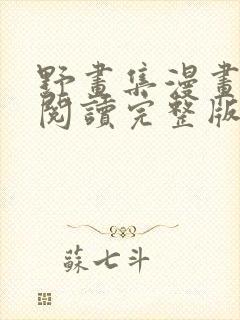 野畫集漫畫
閱讀完整版
蘇七斗